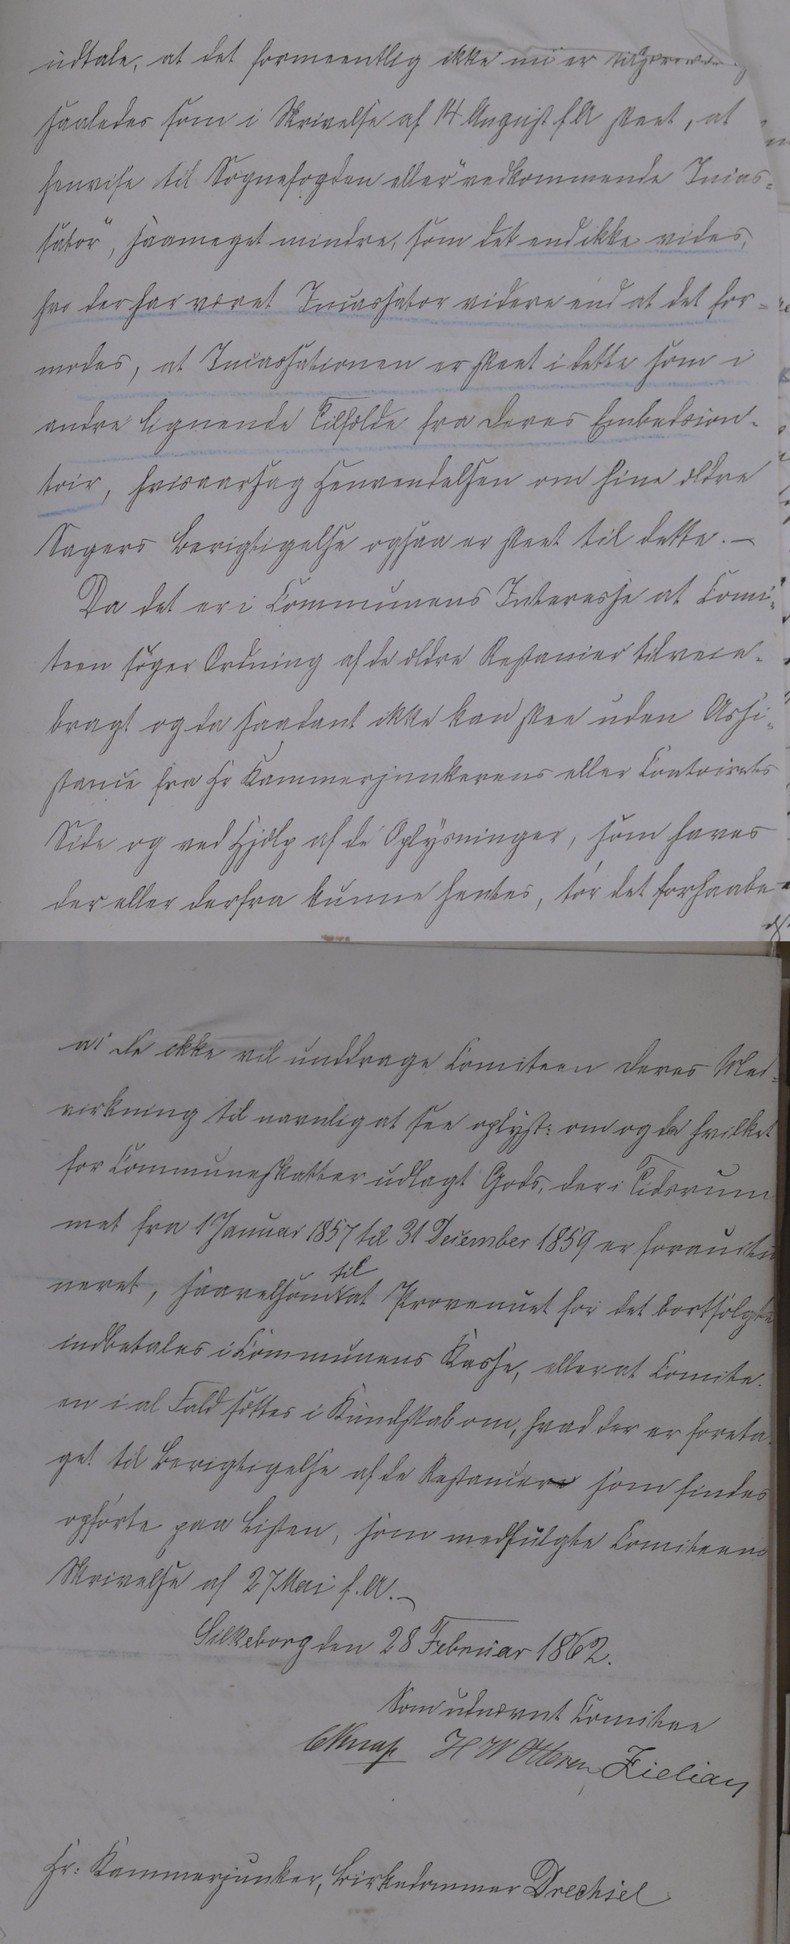 udtale, at det formeentlig ikke nu er
saaledes som i Skrivelse af 14 August f.A skeet, at
henvise til Sognefogden eller "vedkommende Incas-
sator", saameget mindre, som det endikke vides,
hvo der har været Incassator videre end at det for-
modes, at Incassationen er skeet i dette som i
andre lignende Tilfælde fra Deres Embedscon-
toir, hvisaarsag Henvendelsen om hine ældre
Sagers Berigtigelse ogsaa er skeet til dette. —
Da det er i Communens Interesse at Comi-
teen søger Ordning af de ældre Restancer tilveie-
bragt og da saadant ikke kan skee uden Assi-
stance fra Hr Kammerjunkerens eller Contoirets
Side og ved Hjælp af de Oplysninger, som haves
der eller derfra kunne hentes, tør det forhaabe
at De ikke vil unddrage Comiteen Deres Med-
virkning til navnlig at see oplyst: om og da hvilket
for Communeskatter udlagt Gods, der i Tidsrum
met fra 1 Januar 1857 til 31 December 1859 er forauctio
neret, saavelsom til at Provenuet for det bortsolgte
indbetales i Communens Kasse, eller at Comite-
en i al Fald sættes i Kundskab om, hvad der er foreta-
get til Berigtigelse af de Restancer som findes
opførte paa Listen, som medfulgte Comiteens
Skrivelse af 27 Mai f.A. —
Silkeborg den 28 Februar 1862.
Som udnævnt Comitee
CKnap H W Zielian
Hr: Kammerjunker, Birkedommer Drechsel